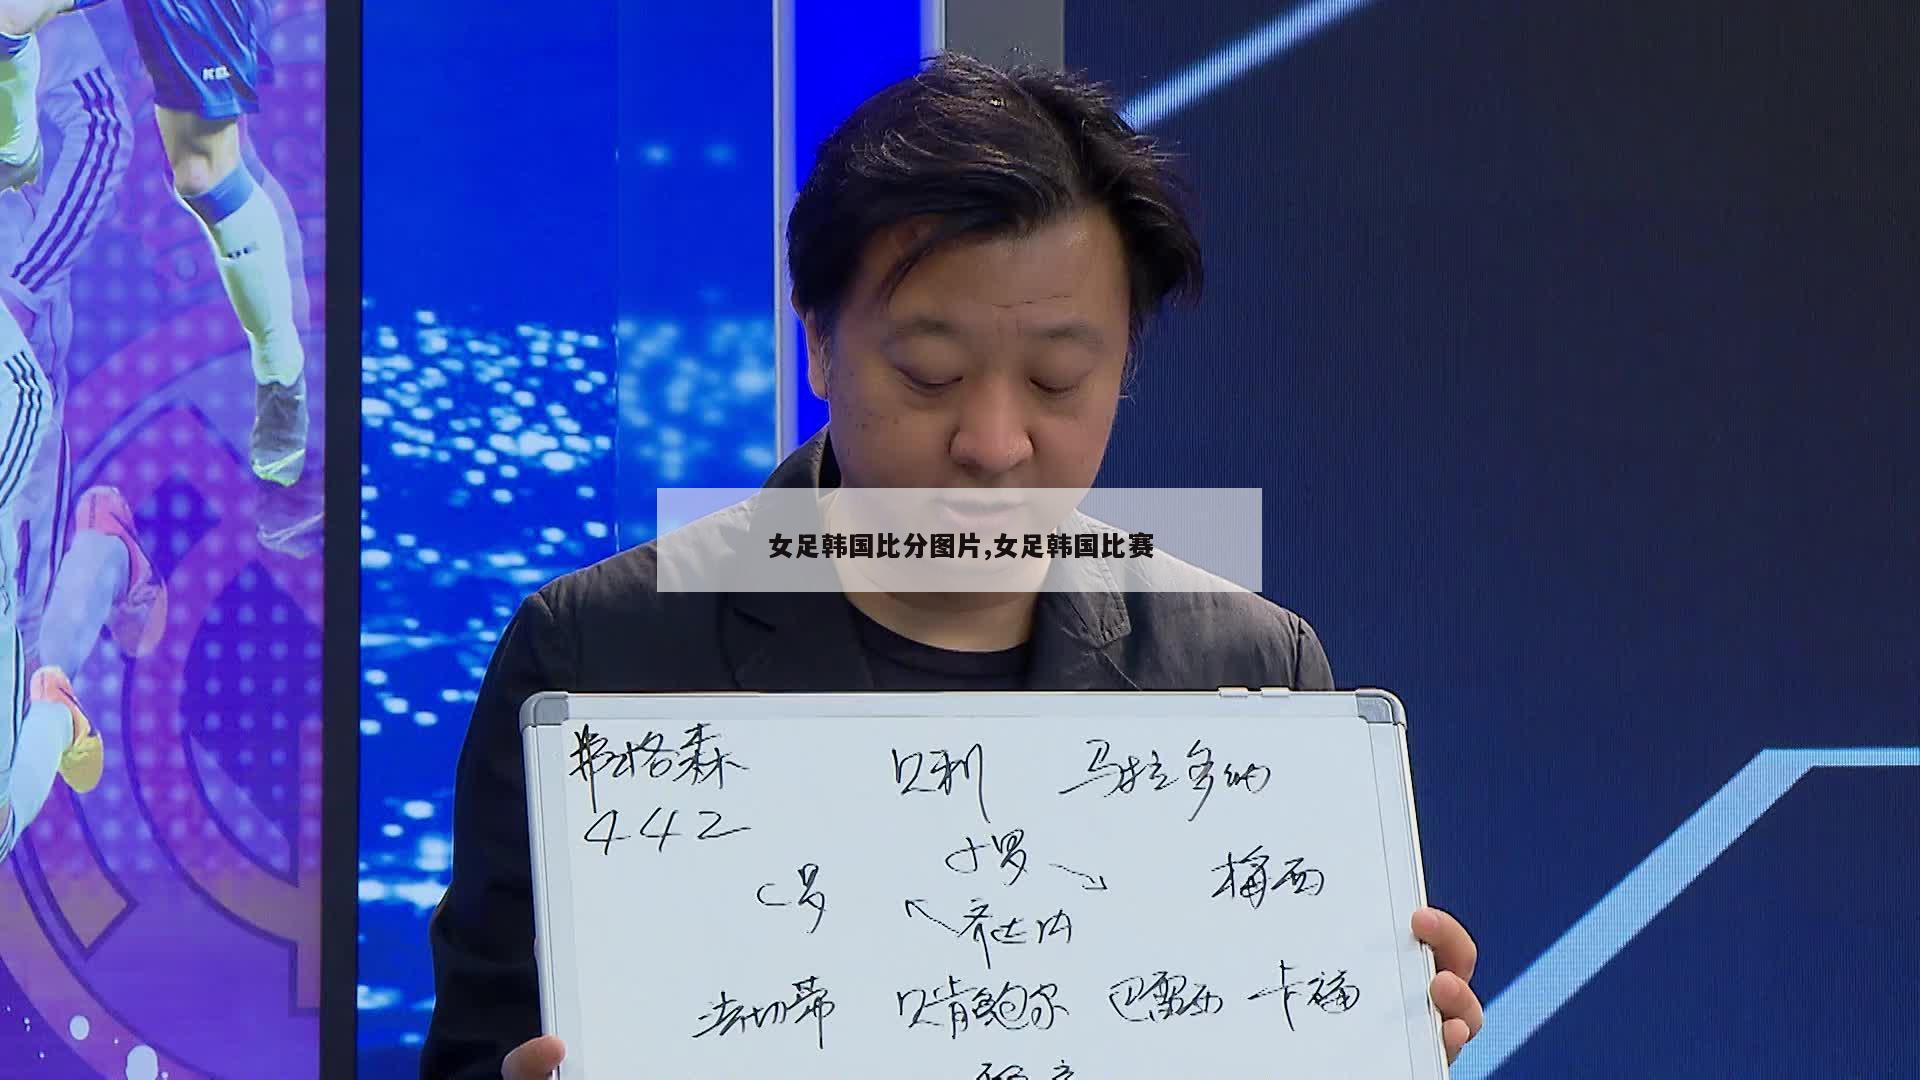 女足韩国比分图片,女足韩国比赛
弗格森 贝利 马拉多纳
442
小罗
C罗 梅西
齐达内
法切蒂 贝肯鲍尔 巴雷西 卡福